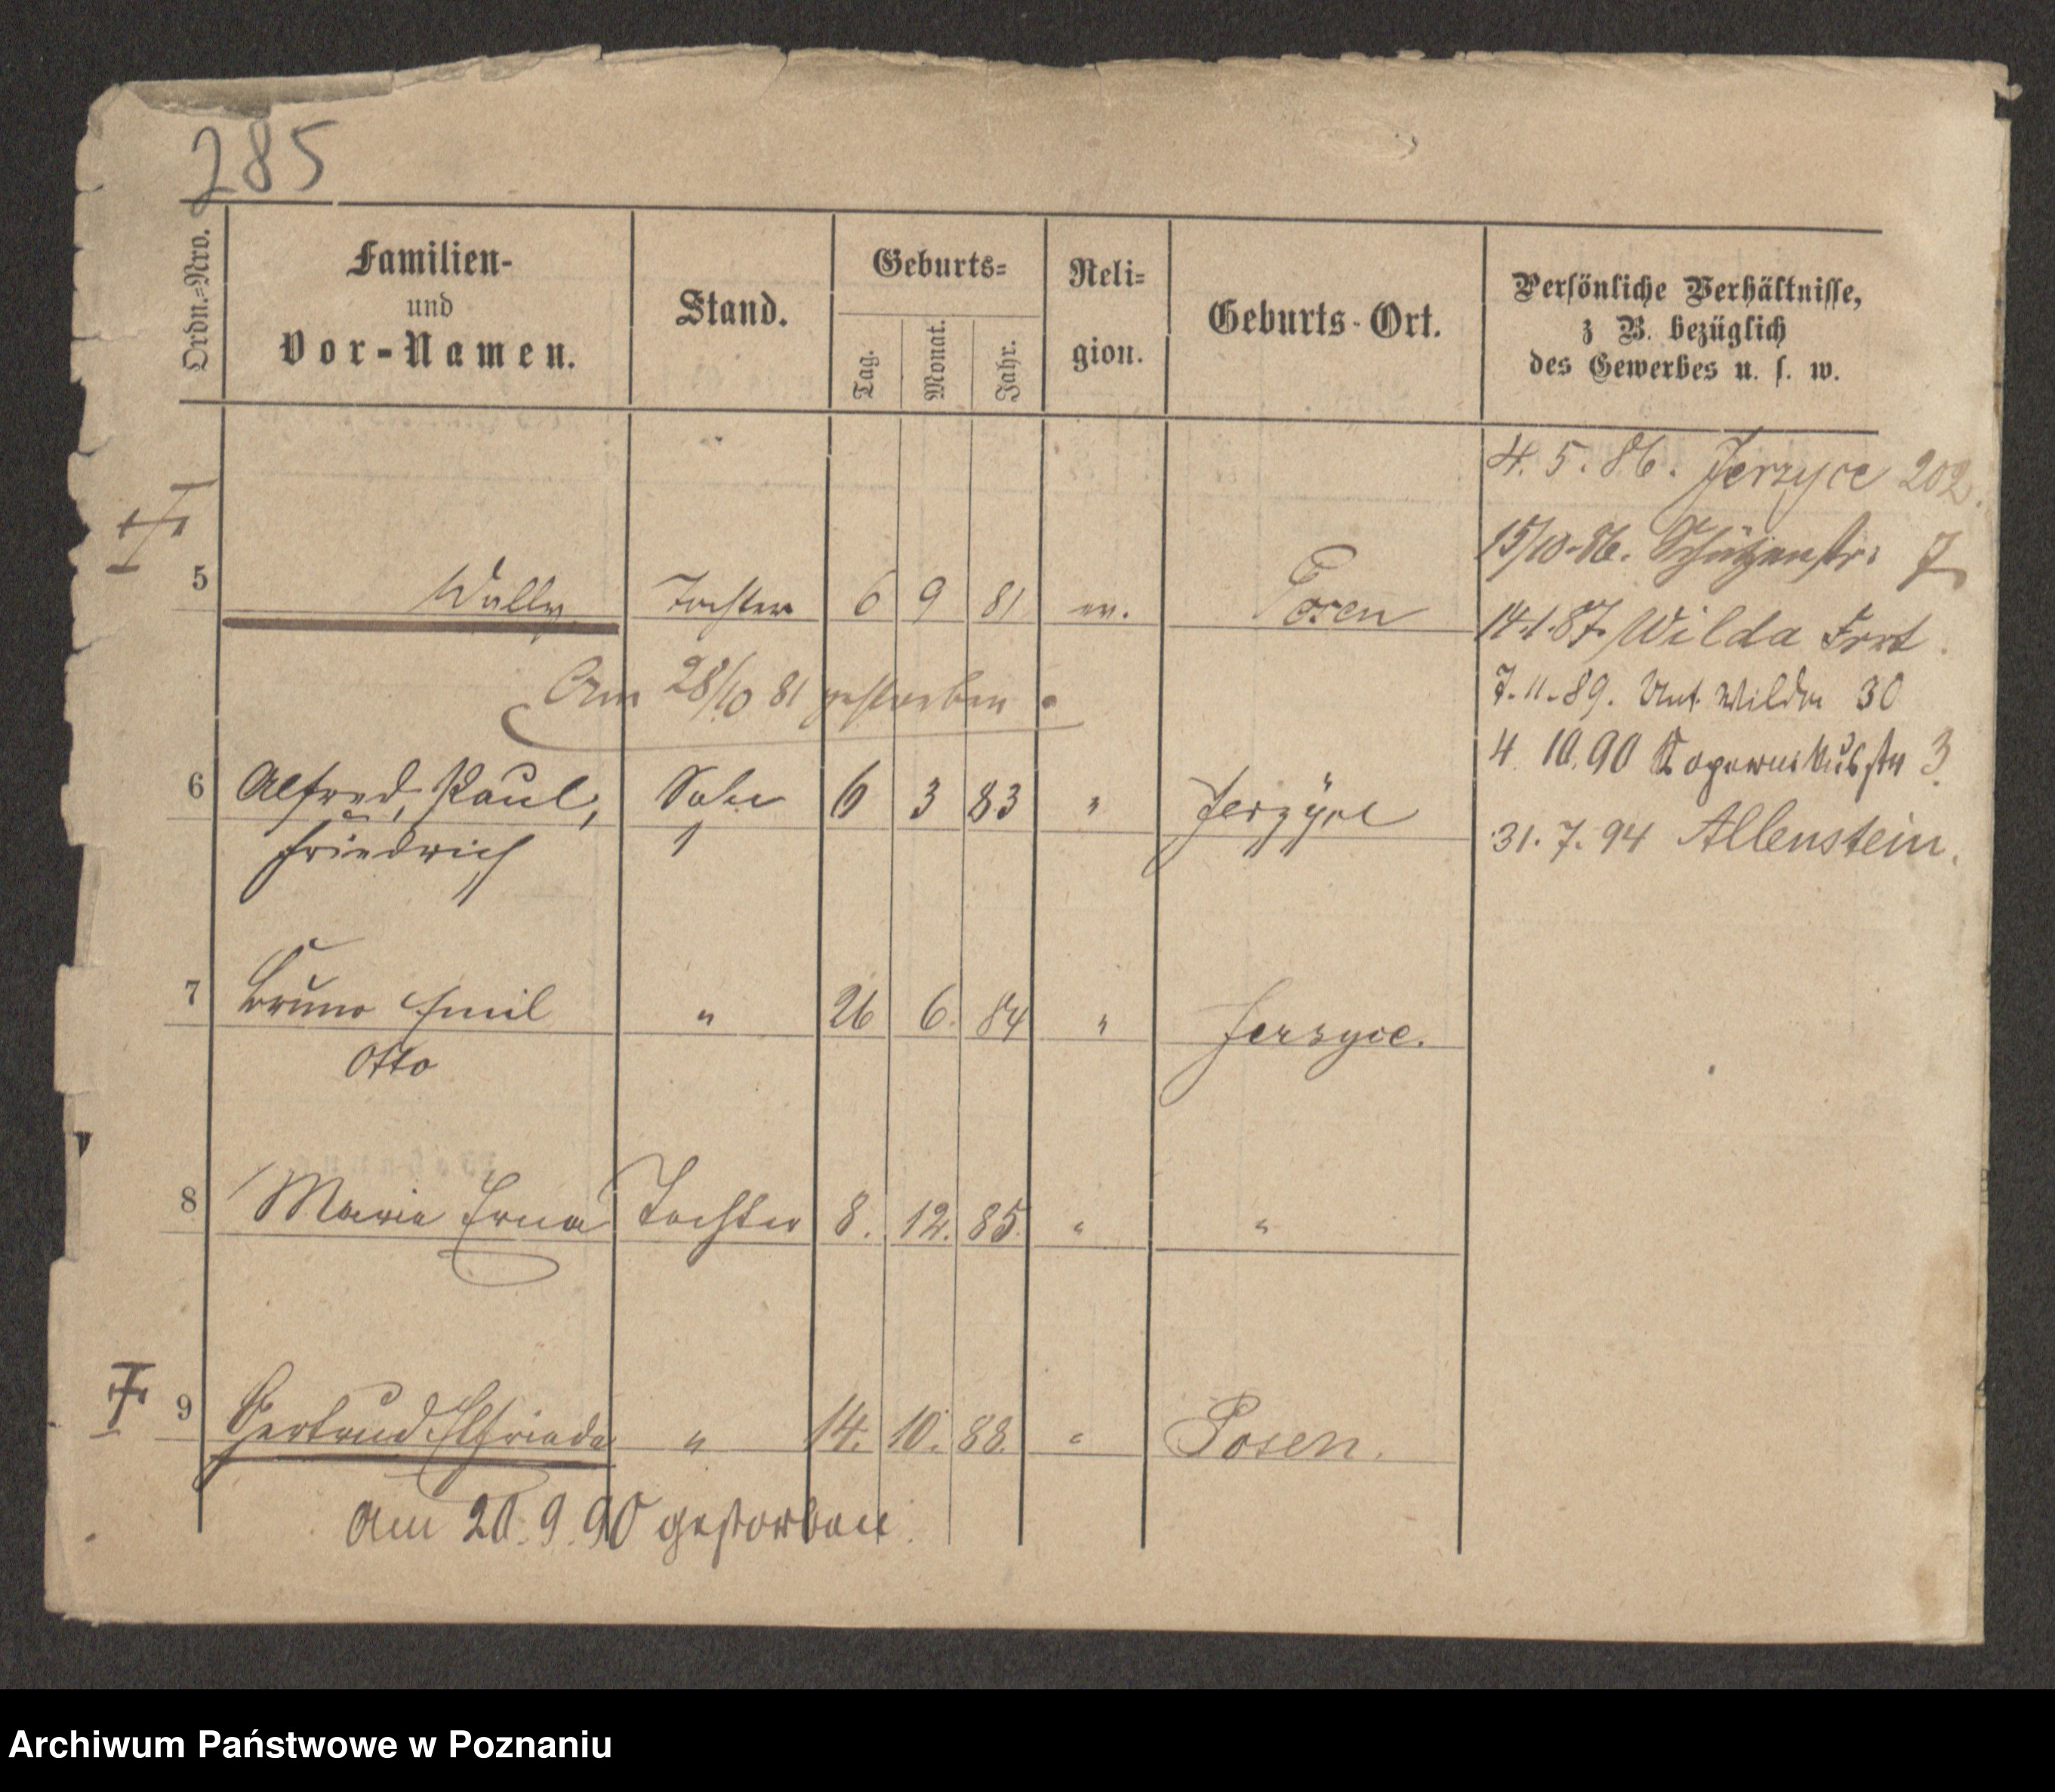 285
Ordn.=Nro.
Familien-
und
Vor-Namen.
Stand.
Geburts=
Tag.
Monat.
Jahr.
Reli=
gion.
Geburts-Ort.
Persönliche Verhältnisse,
z B. bezüglich
des Gewerbes u. s. w.
4. 5. 86. Jerzyce 202.
15/10.86. Schützenstr. 7
5 Wally Tochter 6 9 81 ev. Posen
14.1.87. Wilda Fort.
Am 28/10 81 gestorben.
7.11.89. Unt. Wilda 30
4 10.90 Kopernikusstr 3.
6 Alfred, Paul, Sohn 6 3 83 " Jerzyce
Friedrich
31. 7. 94 Allenstein.
7 Bruno Emil " 26 6. 84 " Jersyce.
Otto
8 Maria Erna Tochter 8. 12. 85 " "
9 Gertrud Elfriede " 14. 10. 88. " Posen.
Am 20.9.90 gestorben.
Archiwum Państwowe w Poznaniu